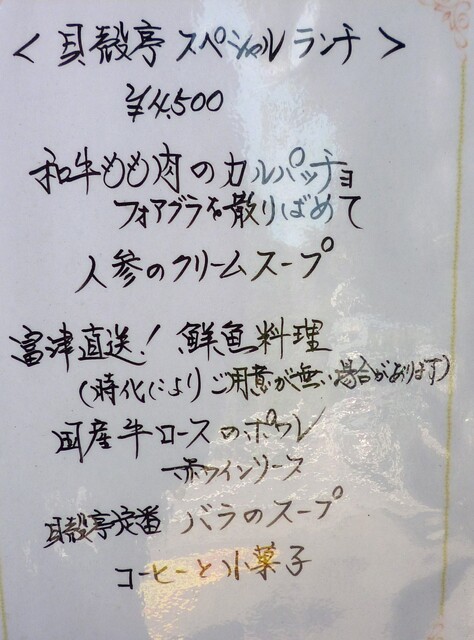 ＜貝殻亭スペシャルランチ＞
¥4,500
和牛もも肉のカルパッチョ
フォアグラを散りばめて
人参のクリームスープ
富津直送!鮮魚料理
(時化によりご用意が無い場合があります)
国産牛ロースのポワレ
赤ワインソース
貝殻亭定番 バラのスープ
コーヒーと小菓子